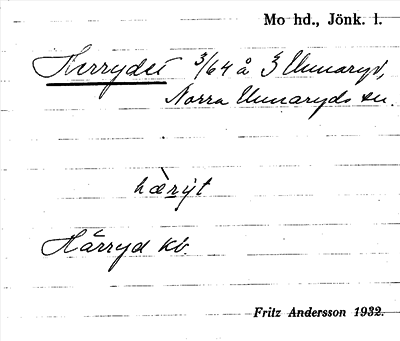 Mo hd., Jönk. l.
Herrydet 3/64 å 3 Unnaryd,
Norra Unnaryds sn.
hæ̀rýt
Härryd kb.
Fritz Andersson 1932.